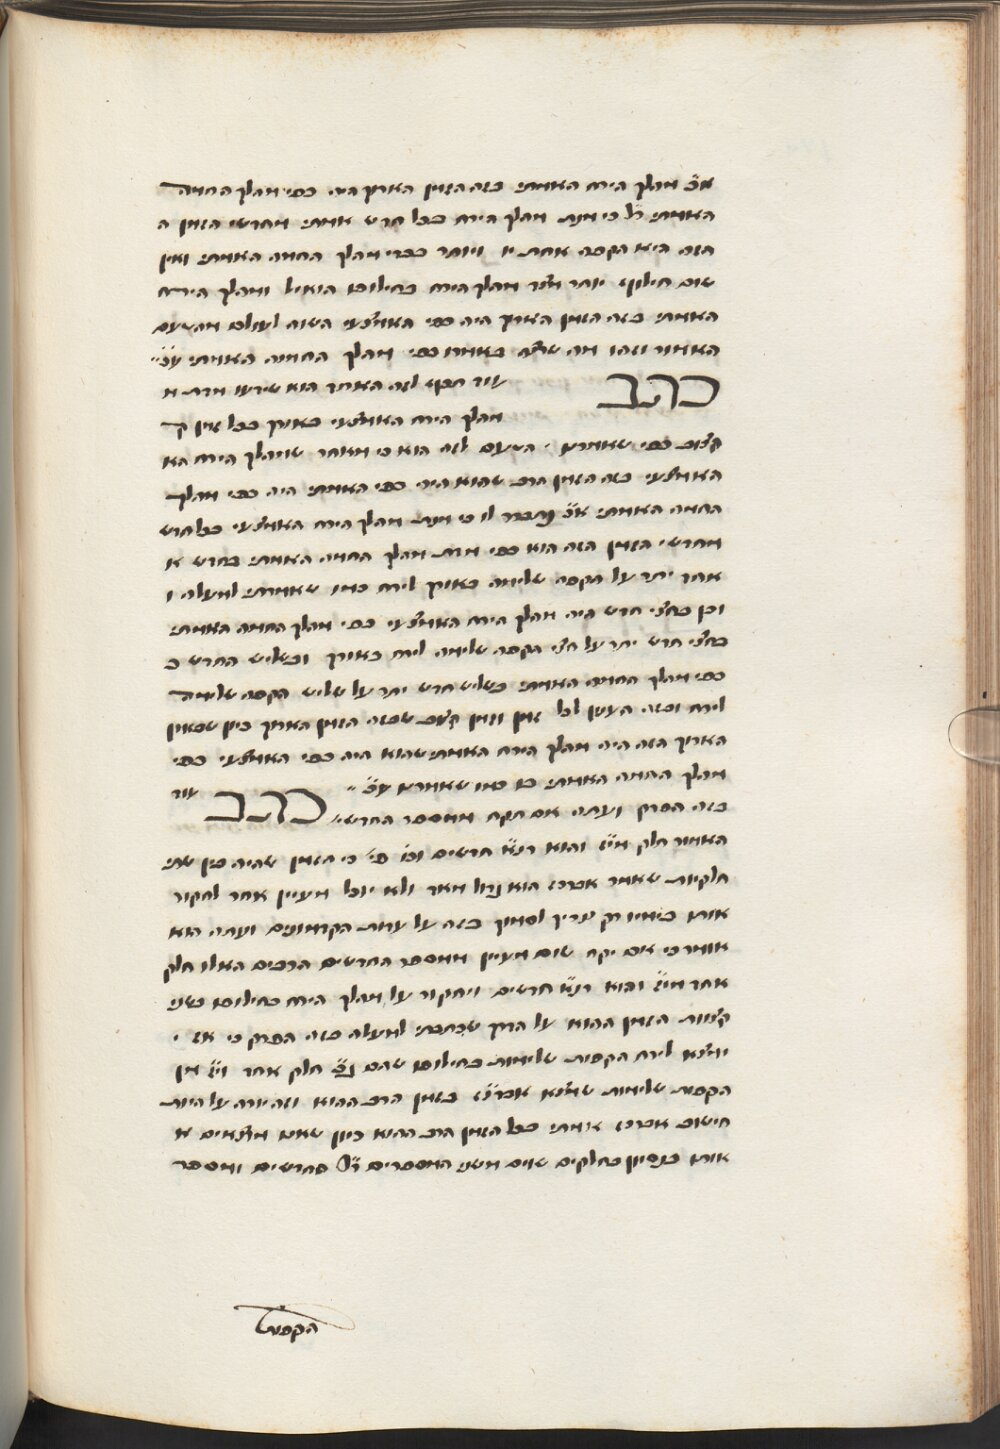 א״כ מהלך הירח האמתי בזה הזמן הארוך היה כפי מהלך החמה
האמתי כל כי מנת מהלך הירח בכל חדש אמתי מחדשי הזמן ה
הזה היא הקפה אחת יו ויותר כפרי מהלך החמה האמתי ואין
שום חילוף יותר מצד מהלך הירח בחילופו הואיל ומהלך הירח
האמתי בזה הזמן הארוך היה כפי האמצעי השוה לעולם מהטעם
האמור וזהו מה שלא באמרו כפי מהלך החמה האמתי עכ״ל
עוד הקש לזה האחר הוא שידעו מדת מ
מהלך הירח האמצעי באורך בכל זמן ק
קצוב כפי שאומר הטעם לזה הוא כי מאחר שמהלך הירח הא
האמצעי בזה הזמן הרב שהוא היה כפי האמתי היה כפי מהלך
החמה האמתי א״כ נתברר לו כי מנת מהלך הירח האמצעי בכל חדש
מחדשי הזמן הזה הוא כפי מדת מהלך החמה האמתי בחדש א
אחד יתר על הקפה שלימה באורך לירח כמו שאמרתי למעלה ו
וכן בחצי חדש היה מהלך הירח האמצעי כפי מהלך החמה האמתי
בחצי חדש יתר על חצי הקפה שלימה לירח באורך ובשליש החדש כ
כפי מהלך החמה האמתי בשליש חדש יתר על שליש הקפה שלימה
לירח ובזה הענין לכל זמן וזמן קצוב שבזה הזמן הארוך כיון שבזמן
הארוך הזה היה מהלך הירח האמתי שהוא היה כפי האמצעי כפי
מהלך החמה האמתי בו כמו שאומר עכ״ל עוד
בזה הפרק ועתה אם תקח ממספר החדשי
האמור חלק מי״ז והוא רנ״א חדשים וכו׳ פי׳ כי הזמן שהיה בין שתי
הלקיות שאמר אברכס הוא גדול מאד ולא יוכל מעיין אחד לחקור
אותו בימיו רק צריך לסמוך בזה על עדות הקדמונים ועתה הוא
אומר כי אם יקח שום מעיין ממספר החדשים הרבים האלו חלק
אחד מי״ז והוא רנ״א חדשים ויחקור על מהלך הירח בחילופו בשני
קצוות הזמן ההוא על הדרך שכתבתי למעלה בזה הפרק כי אז י
ימצא לירח הקפות שלימות בחילופו שהם ג״כ חלק אחד מי״ז מן
הקפות שלימות שמצא אברכ״ס בזמן הרב ההוא וזה יורה על היות
חישוב אברכס אמתי בכל הזמן הרב ההוא כיון שאנו מוצאים א
אותו בנסיון בחלקים שוים משני המספרים ר״ל מחדשים ומספר
הקפות